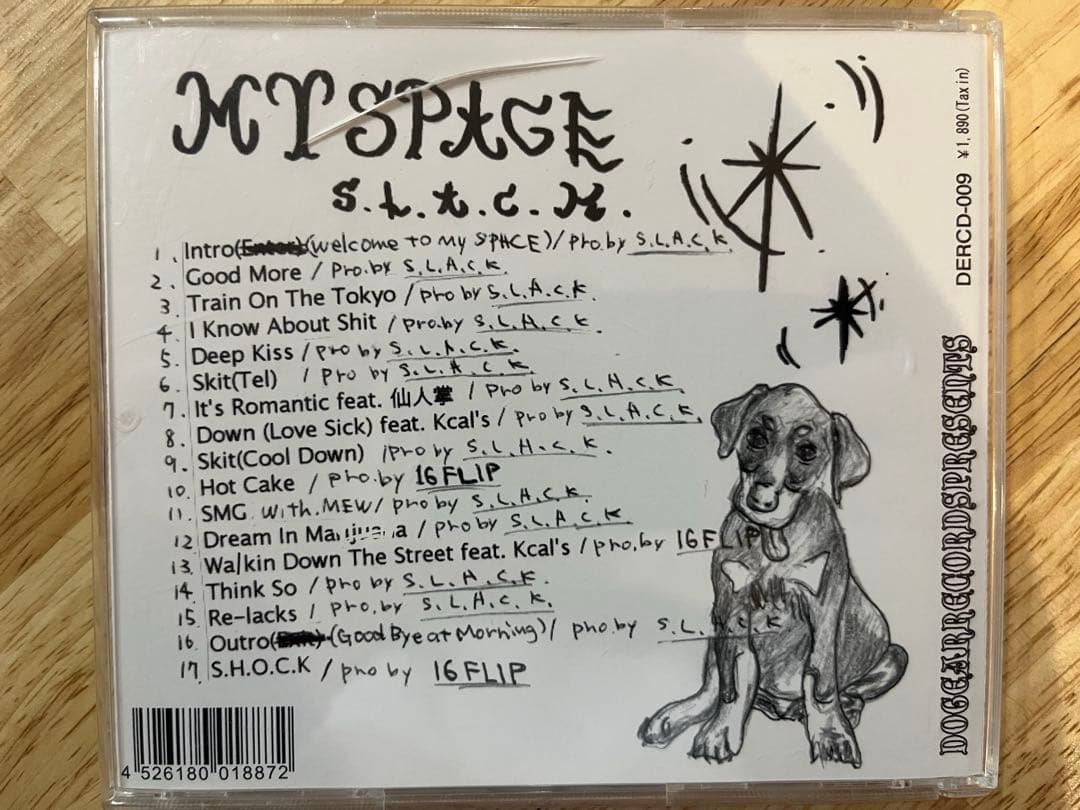 MY SPACE
S.L.A.C.K.
1. Intro(Enter)(welcome to my SPACE)/pro.by S.L.A.C.K.
2. Good More / Pro.by S.L.A.C.K.
3. Train On The Tokyo / pro by S.L.A.C.K.
4. I Know About Shit / pro.by S.L.A.C.K.
5. Deep Kiss / pro by S.L.A.C.K.
6. Skit(Tel) / pro by S.L.A.C.K.
7. It's Romantic feat. 仙人掌 / pro by S.L.A.C.K.
8. Down (Love Sick) feat. Kcal's / pro by S.L.A.C.K.
9. Skit(Cool Down) / pro by S.L.A.C.K.
10. Hot Cake / pro.by 16FLIP
11. SMG with.MEW/ pro by S.L.A.C.K.
12 Dream In Marijuana / pro by S.L.A.C.K.
13. Walkin Down The Street feat. Kcal's / pro.by 16FLIP
14. Think So / pro by S.L.A.C.K.
15. Re-lacks / pro.by S.L.A.C.K.
16. Outro(Exit)(Good Bye at Morning)/ pro.by S.L.A.C.K
17. S.H.O.C.K / pro by 16FLIP
4 526180 018872
DERCD-009 ¥1,890(Tax in)
DOGEARRECORDSPRESENTS